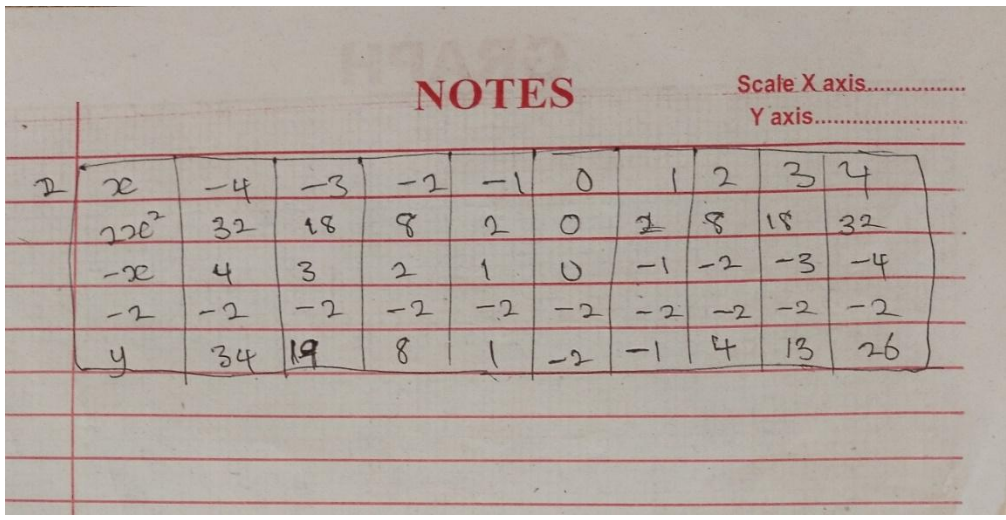 GRAPH
NOTES
Scale X axis................
Y axis........................
2 x -4 -3 -2 -1 0 1 2 3 4
2x² 32 18 8 2 0 2 8 18 32
-x 4 3 2 1 0 -1 -2 -3 -4
-2 -2 -2 -2 -2 -2 -2 -2 -2 -2
y 34 19 8 1 -2 -1 4 13 26